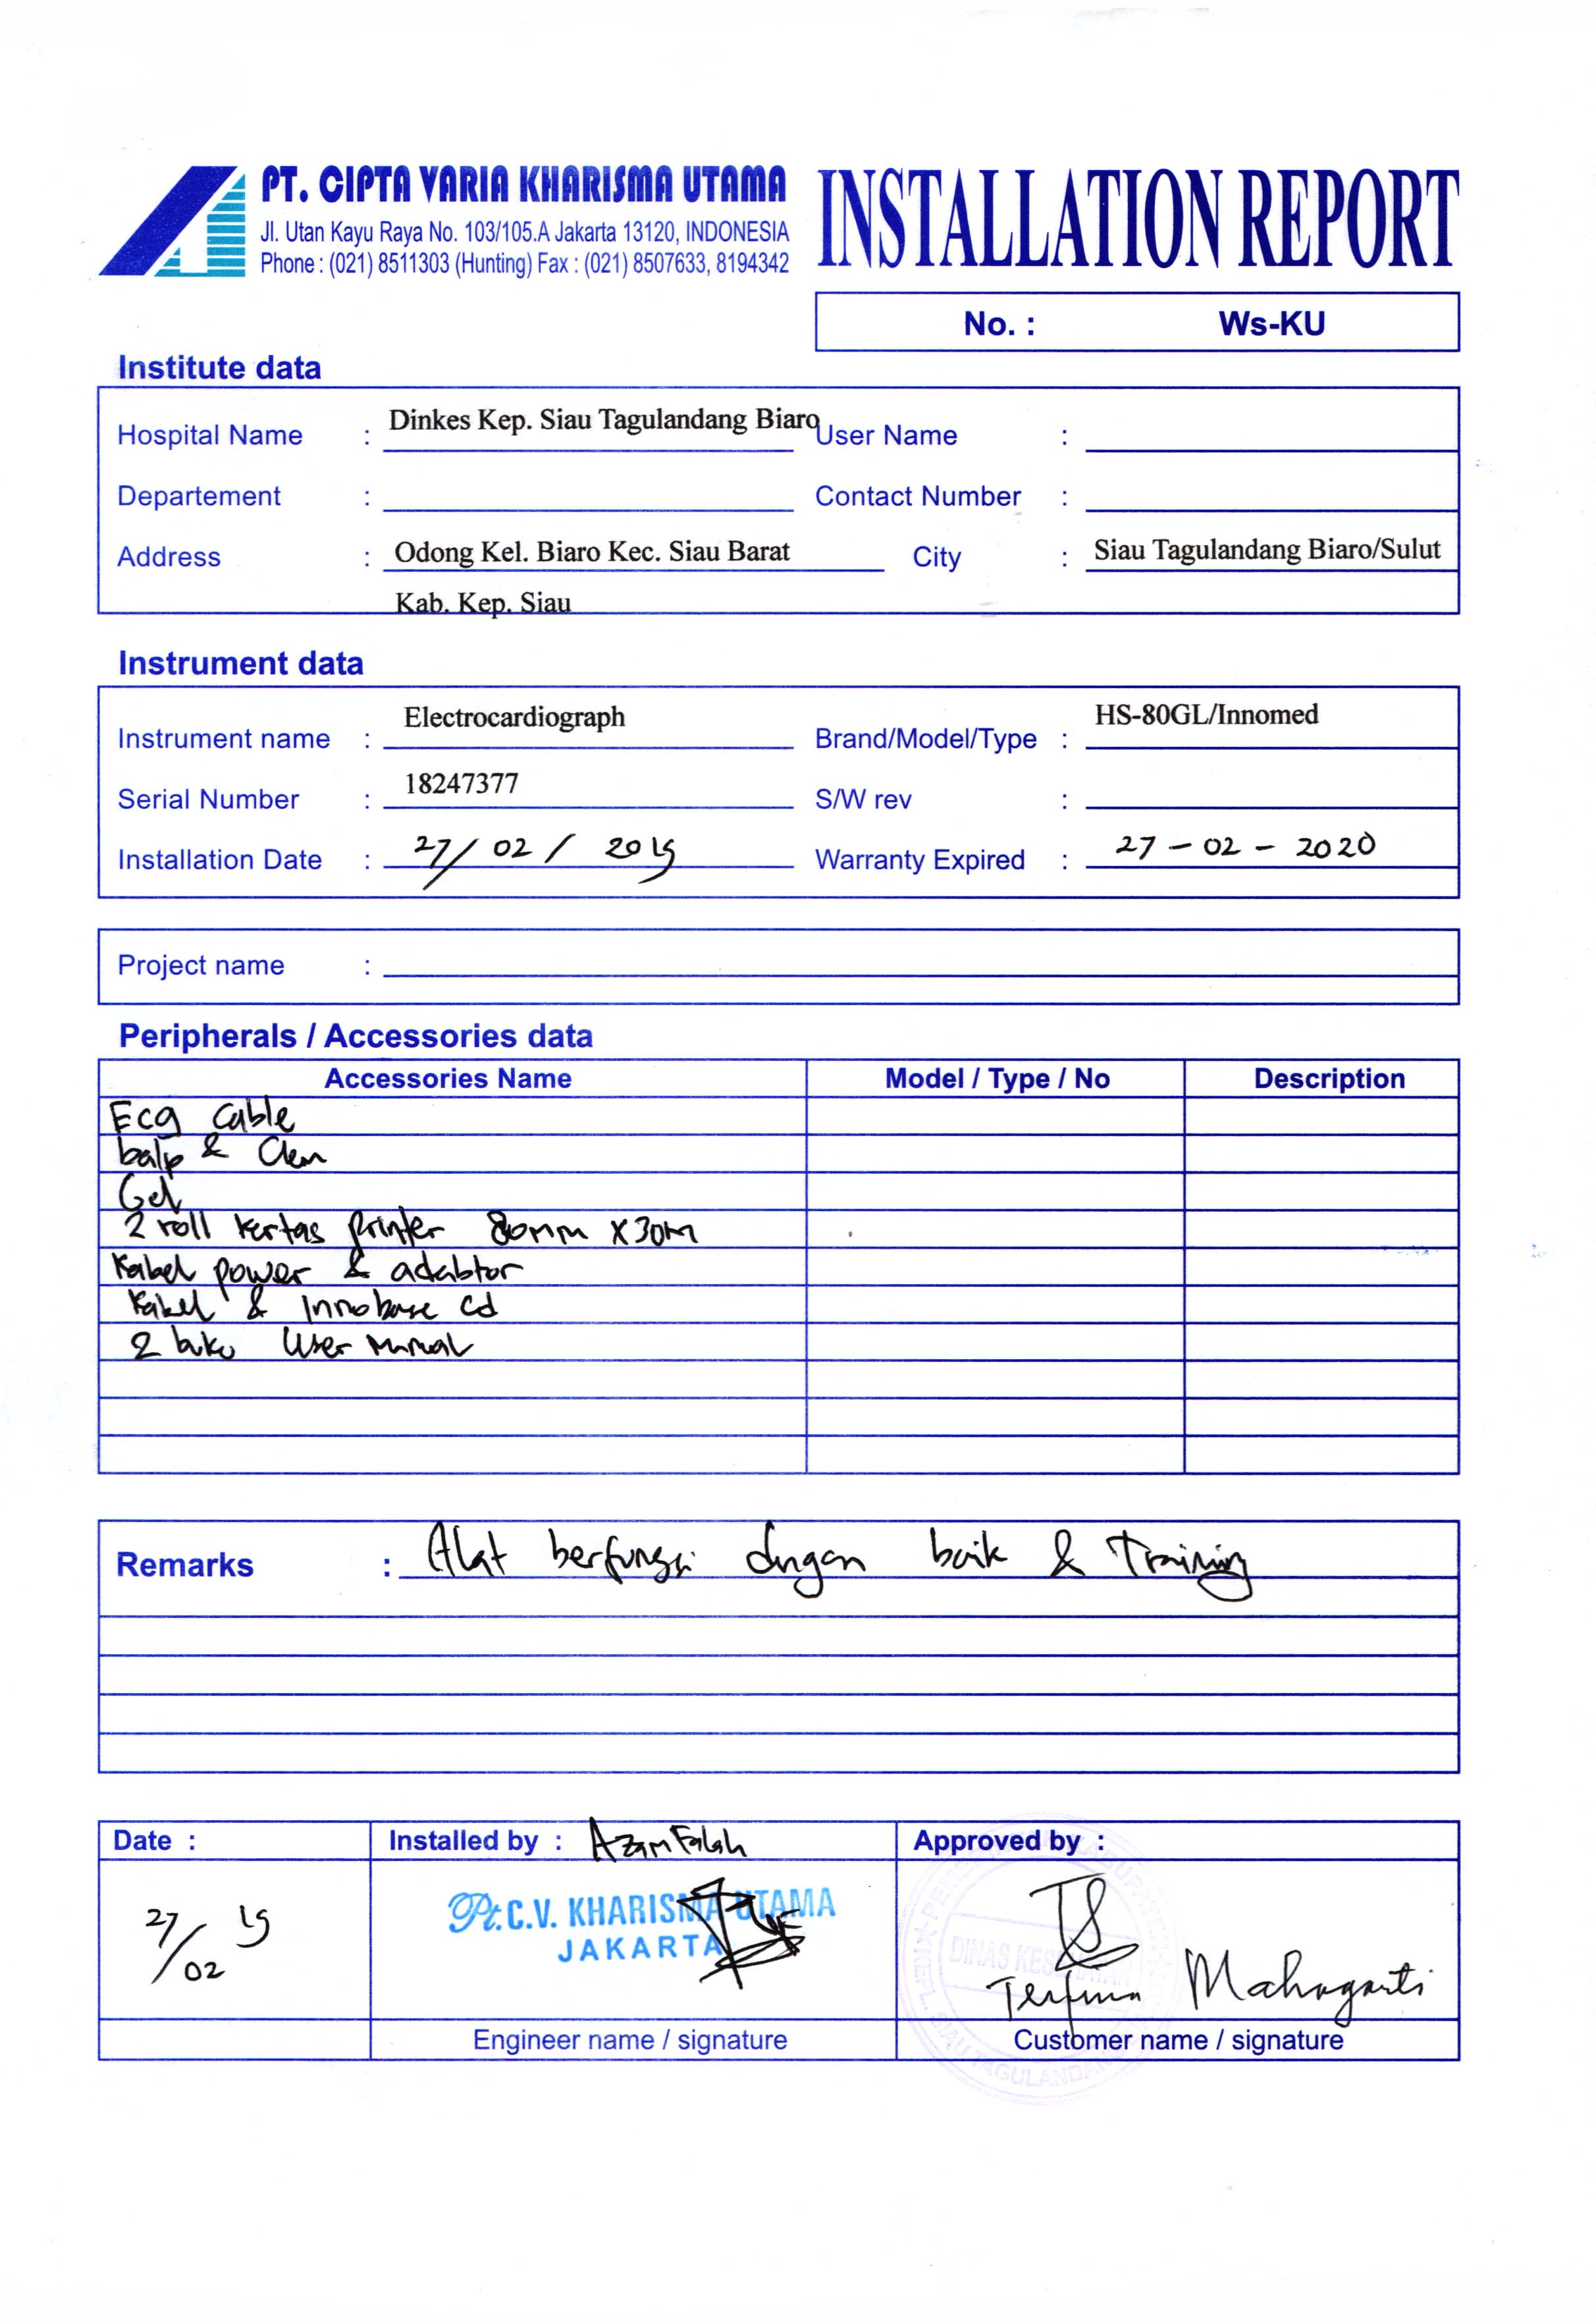 PT. CIPTA VARIA KHARISMA UTAMA
Jl. Utan Kayu Raya No. 103/105.A Jakarta 13120, INDONESIA
Phone : (021) 8511303 (Hunting) Fax : (021) 8507633, 8194342
INSTALLATION REPORT
No. : Ws-KU
Institute data
Hospital Name : Dinkes Kep. Siau Tagulandang Biaro User Name :
Departement : Contact Number :
Address : Odong Kel. Biaro Kec. Siau Barat City : Siau Tagulandang Biaro/Sulut
Kab. Kep. Siau
Instrument data
Instrument name : Electrocardiograph Brand/Model/Type : HS-80GL/Innomed
Serial Number : 18247377 S/W rev :
Installation Date : 27/02/2019 Warranty Expired : 27-02-2020
Project name :
Peripherals / Accessories data
Accessories Name Model / Type / No Description
Ecg Cable
balp & Clem
Gel
2 roll kertas printer 80mm X30M
Kabel power & adabtor
Kabel & Innobase Cd
2 buku User manual
Remarks : Alat berfungsi dngan baik & Training
Date : Installed by : Azam Falah Approved by :
27/02 19
Pt. C.V. KHARISMA UTAMA
JAKARTA
DINAS KESEHATAN
SIAU TAGULANDANG
Mahagarti
Engineer name / signature Customer name / signature